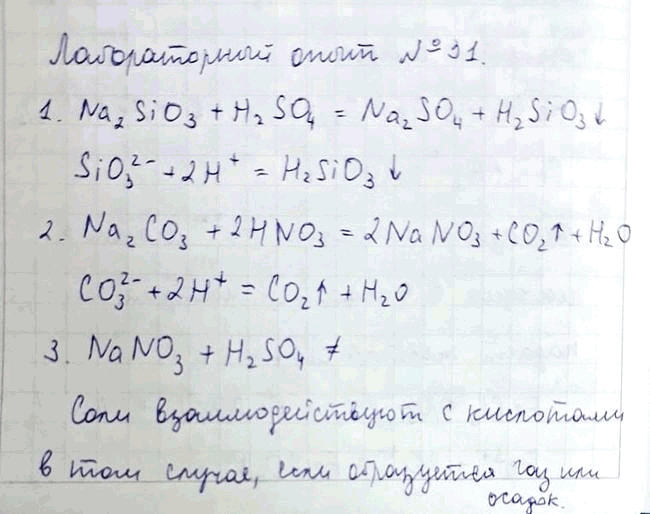 Лабораторный опыт №31.
1. Na₂SiO₃ + H₂SO₄ = Na₂SO₄ + H₂SiO₃↓
SiO₃²⁻ + 2H⁺ = H₂SiO₃↓
2. Na₂CO₃ + 2HNO₃ = 2NaNO₃ + CO₂↑ + H₂O
CO₃²⁻ + 2H⁺ = CO₂↑ + H₂O
3. NaNO₃ + H₂SO₄ ≠
Соли взаимодействуют с кислотами
в том случае, если образуется газ или
осадок.